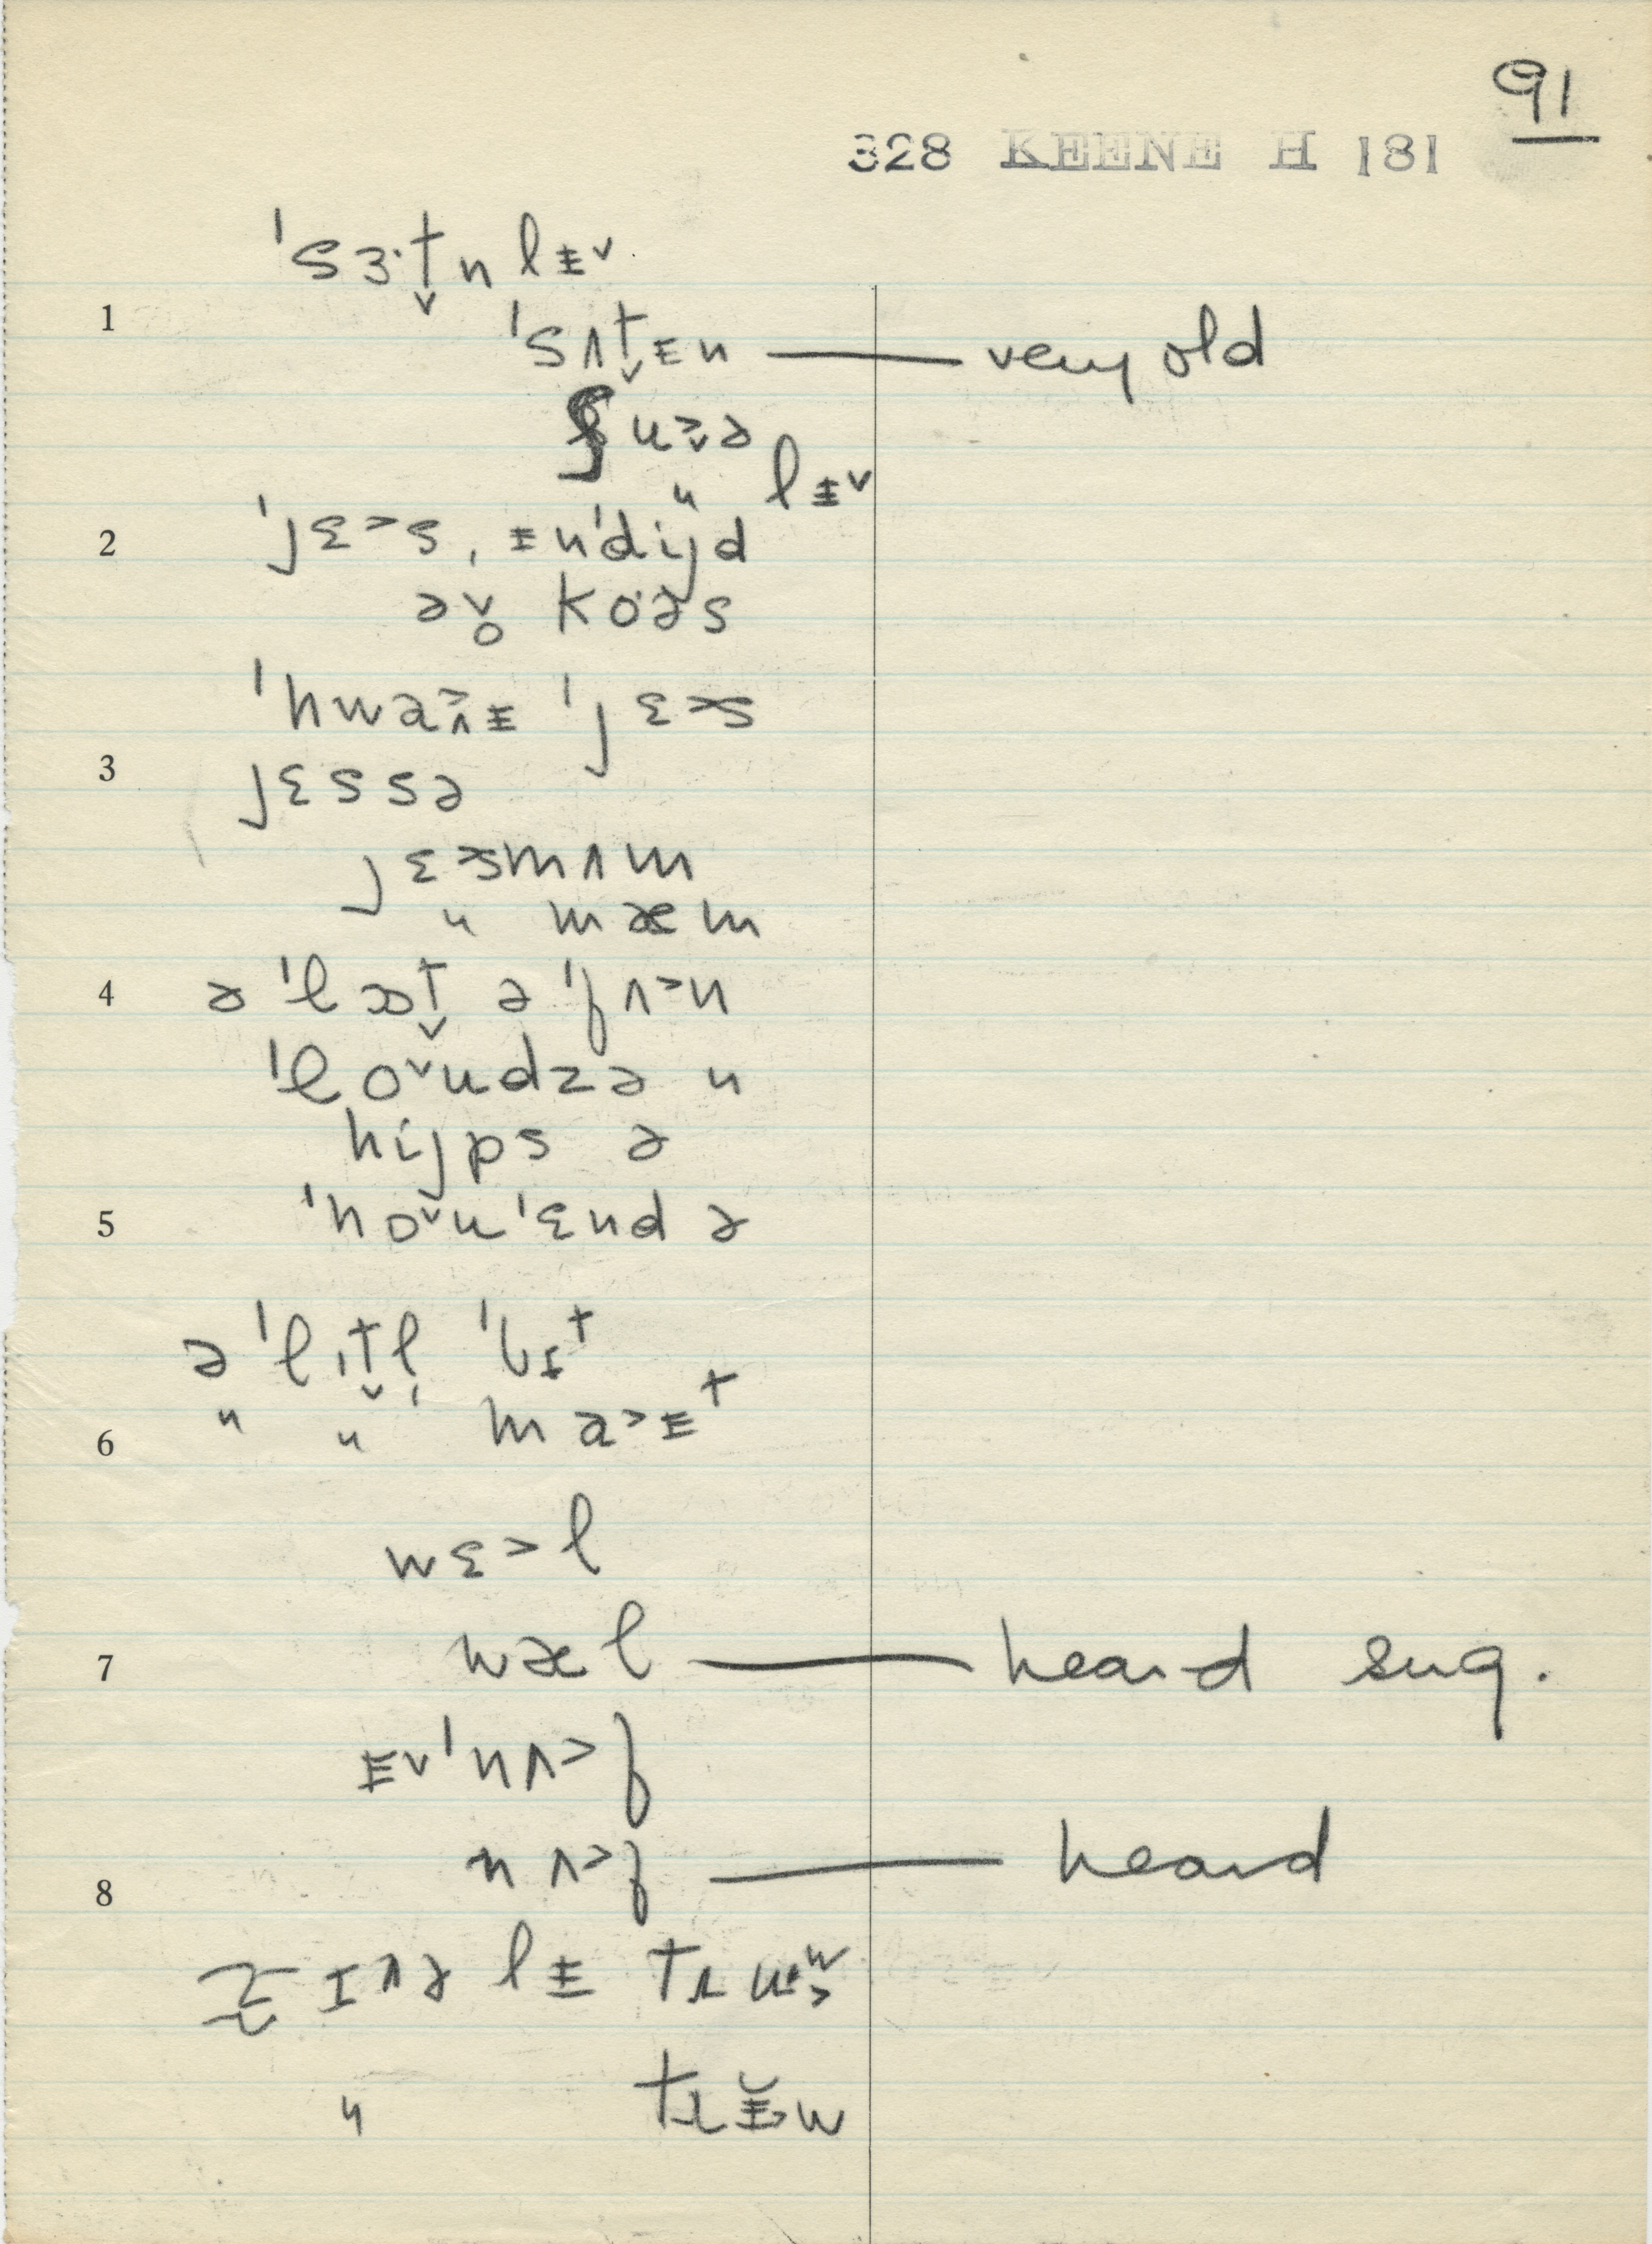 91
328 KEENE H 181
ˈsɜ·t̬n lɨ˅
1
ˈsʌt̬ɨn — very old
ʃuə
" lɨ˅
2
ˈjɛ˃s, ɨnˈdijd
əv̥ ko·əs
ˈhwaɨ ˈjɛ˃s
3
jɛssə
jɛ˃smʌm
" mæm
4
ə ˈlɒt̬ ə ˈfʌ˃n
ˈlo˅udzə n
hijps ə
5
ˈno˅u ˈɛnd ə
ə ˈlɪt̬l̩ ˈbɪt
6
" " ma˃ɨt
wɛ˃l
7
wæl — heard sug.
ɨ˅ˈnʌ˃f
8
nʌ˃f — heard
lɨ
"